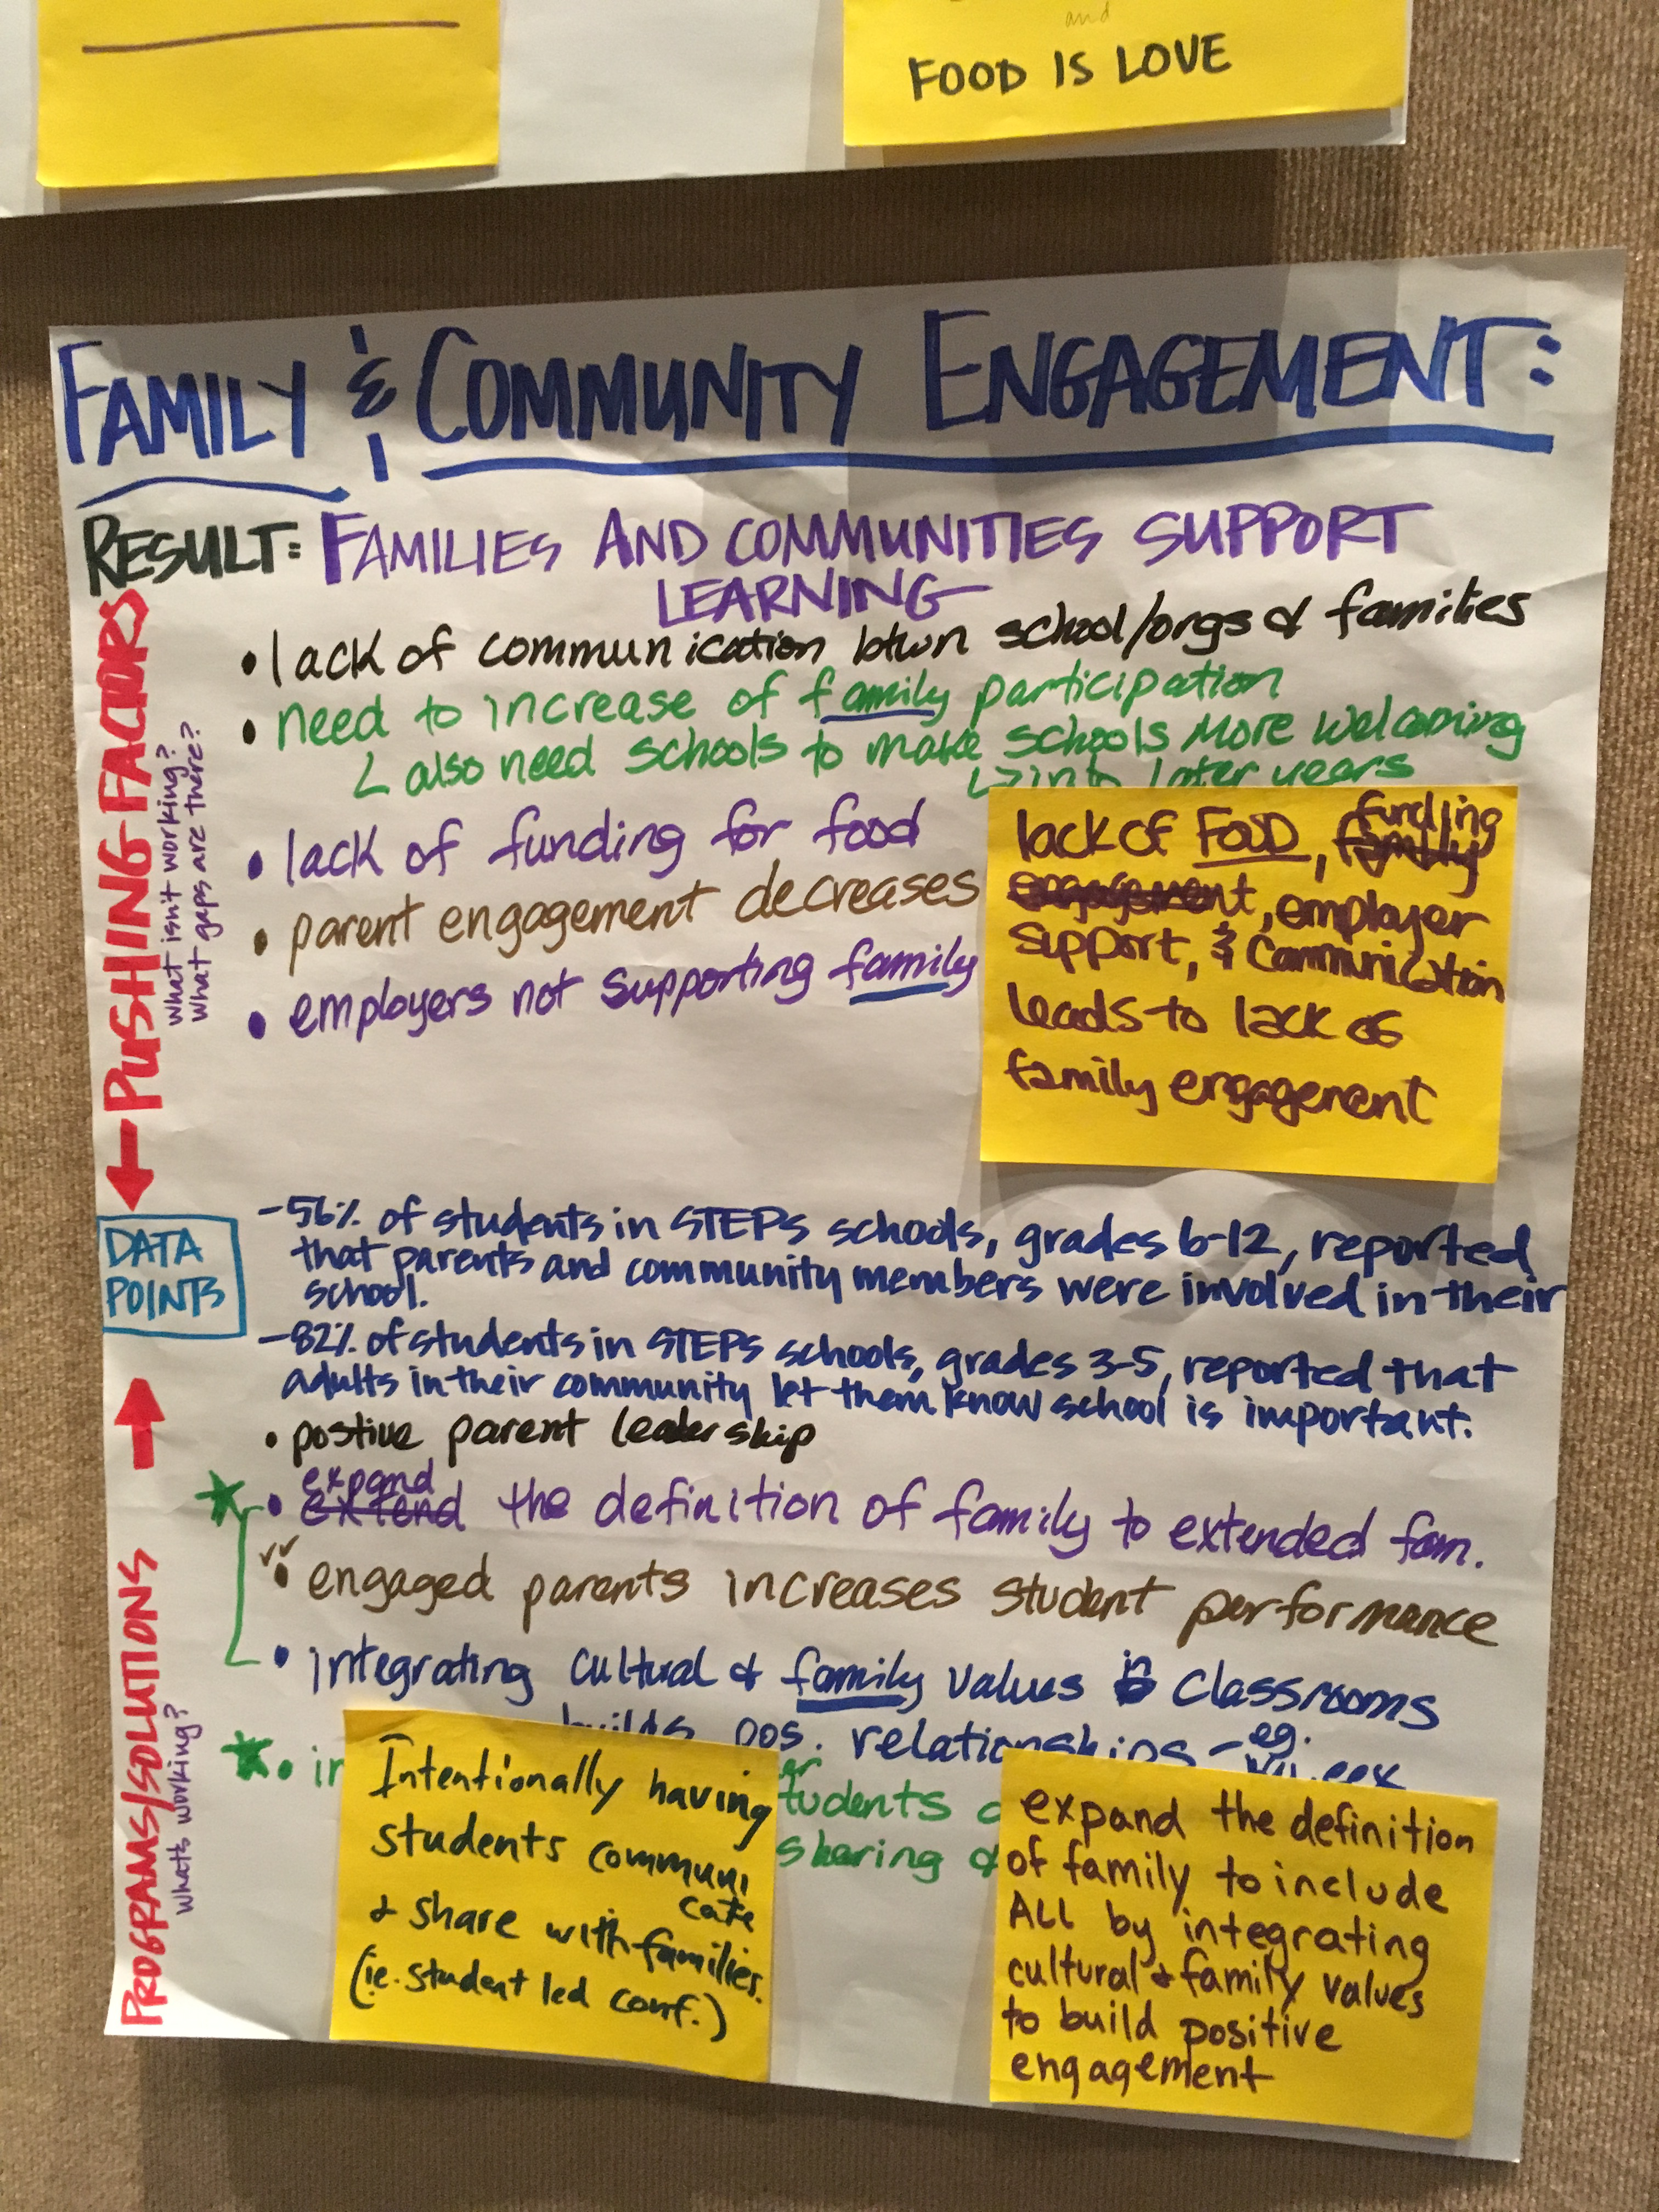 and
FOOD IS LOVE
FAMILY & COMMUNITY ENGAGEMENT:
RESULT: FAMILIES AND COMMUNITIES SUPPORT
LEARNING
← PUSHING FACTORS
What isn't working?
What gaps are there?
• lack of communication btwn school/orgs & families
• need to increase of family participation
also need schools to make schools More Welcoming
into later years
• lack of funding for food
• parent engagement decreases
• employers not supporting family
lack of FOOD, funding
family
engagement, employer
support, & communication
leads to lack of
family engagement
DATA
POINTS
-56% of students in STEPS schools, grades 6-12, reported
that parents and community members were involved in their
school.
-82% of students in STEPS schools, grades 3-5, reported that
adults in their community let them know school is important.
PROGRAMS/SOLUTIONS →
Whats working?
• postive parent leadership
expand
• extend the definition of family to extended fam.
• engaged parents increases student performance
• integrating cultural & family values in classrooms
builds pos. relationships - eg.
tudents
sharing &
Intentionally having
students communi
cate
& share with families.
(ie. student led conf.)
expand the definition
of family to include
ALL by integrating
cultural & family values
to build positive
engagement